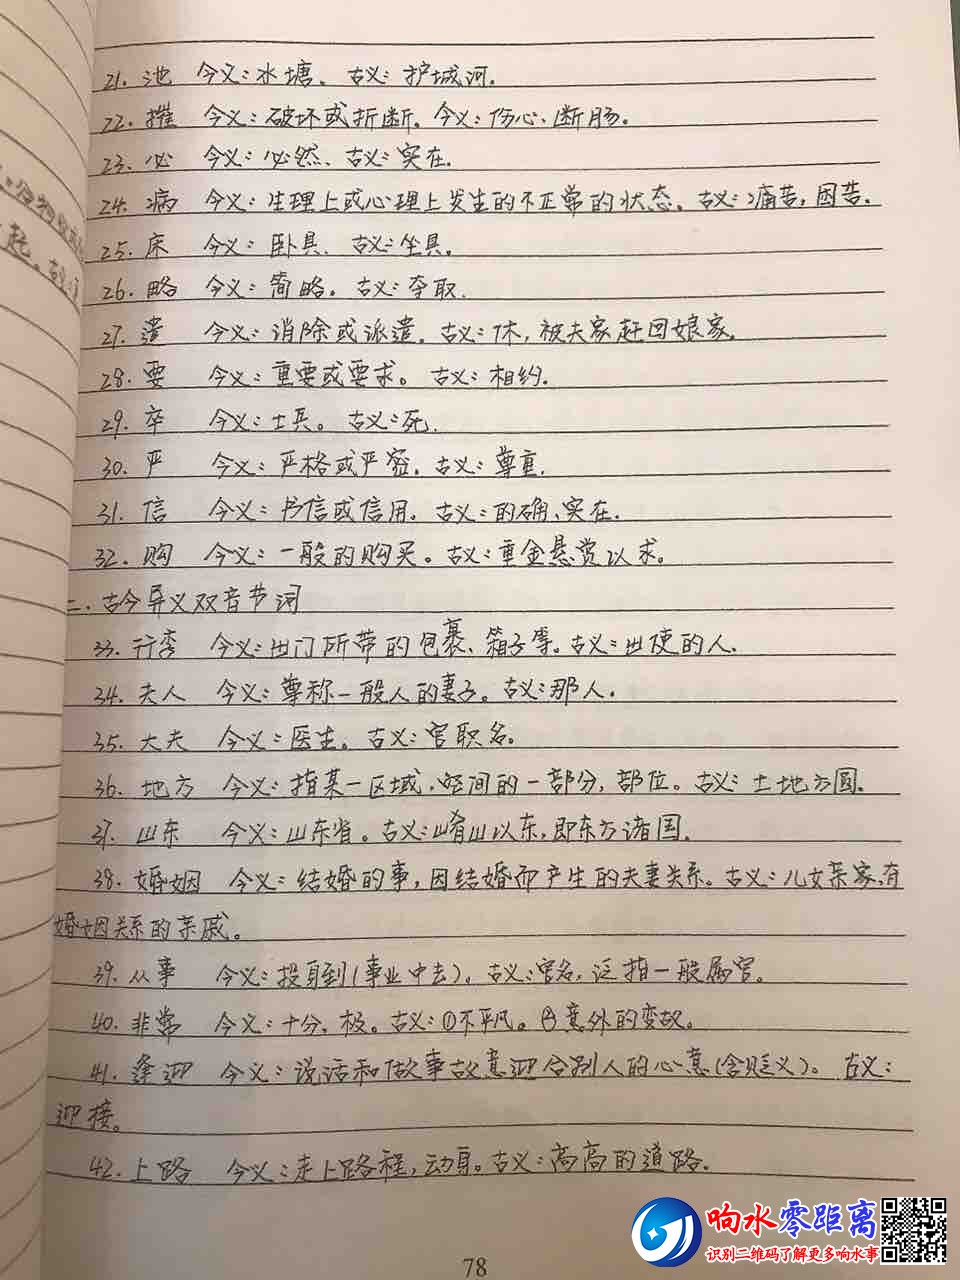 21. 池 今义:水塘、古义:护城河.
22. 摧 今义:破坏或折断。今义:伤心、断肠。
23. 必 今义:必然、古义:实在.
24. 病 今义:生理上或心理上发生的不正常的状态。古义:痛苦,困苦.
25. 床 今义:卧具、古义:坐具。
26. 略 今义:简略。古义:夺取.
27. 遣 今义:消除或派遣。古义:休,被夫家赶回娘家。
28. 要 今义:重要或要求。古义:相约.
29. 卒 今义:士兵。古义:死.
30. 严 今义:严格或严密.古义:尊重.
31. 信 今义:书信或信用.古义:的确、实在.
32. 购 今义:一般的购买。古义:重金悬赏以求。
二、古今异义双音节词
33. 行李 今义:出门所带的包裹、箱子等。古义:出使的人.
34. 夫人 今义:尊称一般人的妻子。古义:那人.
35. 大夫 今义:医生。古义:官职名。
36. 地方 今义:指某一区域,空间的一部分,部位。古义:土地方圆.
37. 山东 今义:山东省。古义:崤山以东,即东方诸国.
38. 婚姻 今义:结婚的事,因结婚而产生的夫妻关系。古义:儿女亲家,有
婚姻关系的亲戚。
39. 从事 今义:投身到(事业中去)。古义:官名,泛指一般属官。
40. 非常 今义:十分、极。古义:①不平凡。②意外的变故。
41. 逢迎 今义:说话和做事故意迎合别人的心意(含贬义)。古义:
迎接。
42. 上路 今义:走上路程,动身。古义:高高的道路.
78
响水零距离
识别二维码了解更多响水事